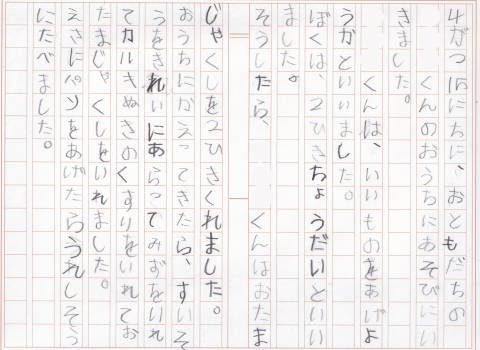 4がつ15にちに、おともだちの
くんのおうちにあそびにい
きました。
くんは、いいものをあげよ
うかといいました。
ぼくは、2ひきちょうだいといい
ました。
そうしたら、 くんはおたま
じゃくしを2ひきくれました。
おうちにかえってきたら、すいそ
うをきれいにあらってみずをいれ
てカルキぬきのくすりをいれてお
たまじゃくしをいれました。
えさにパンをあげたらうれしそう
にたべました。